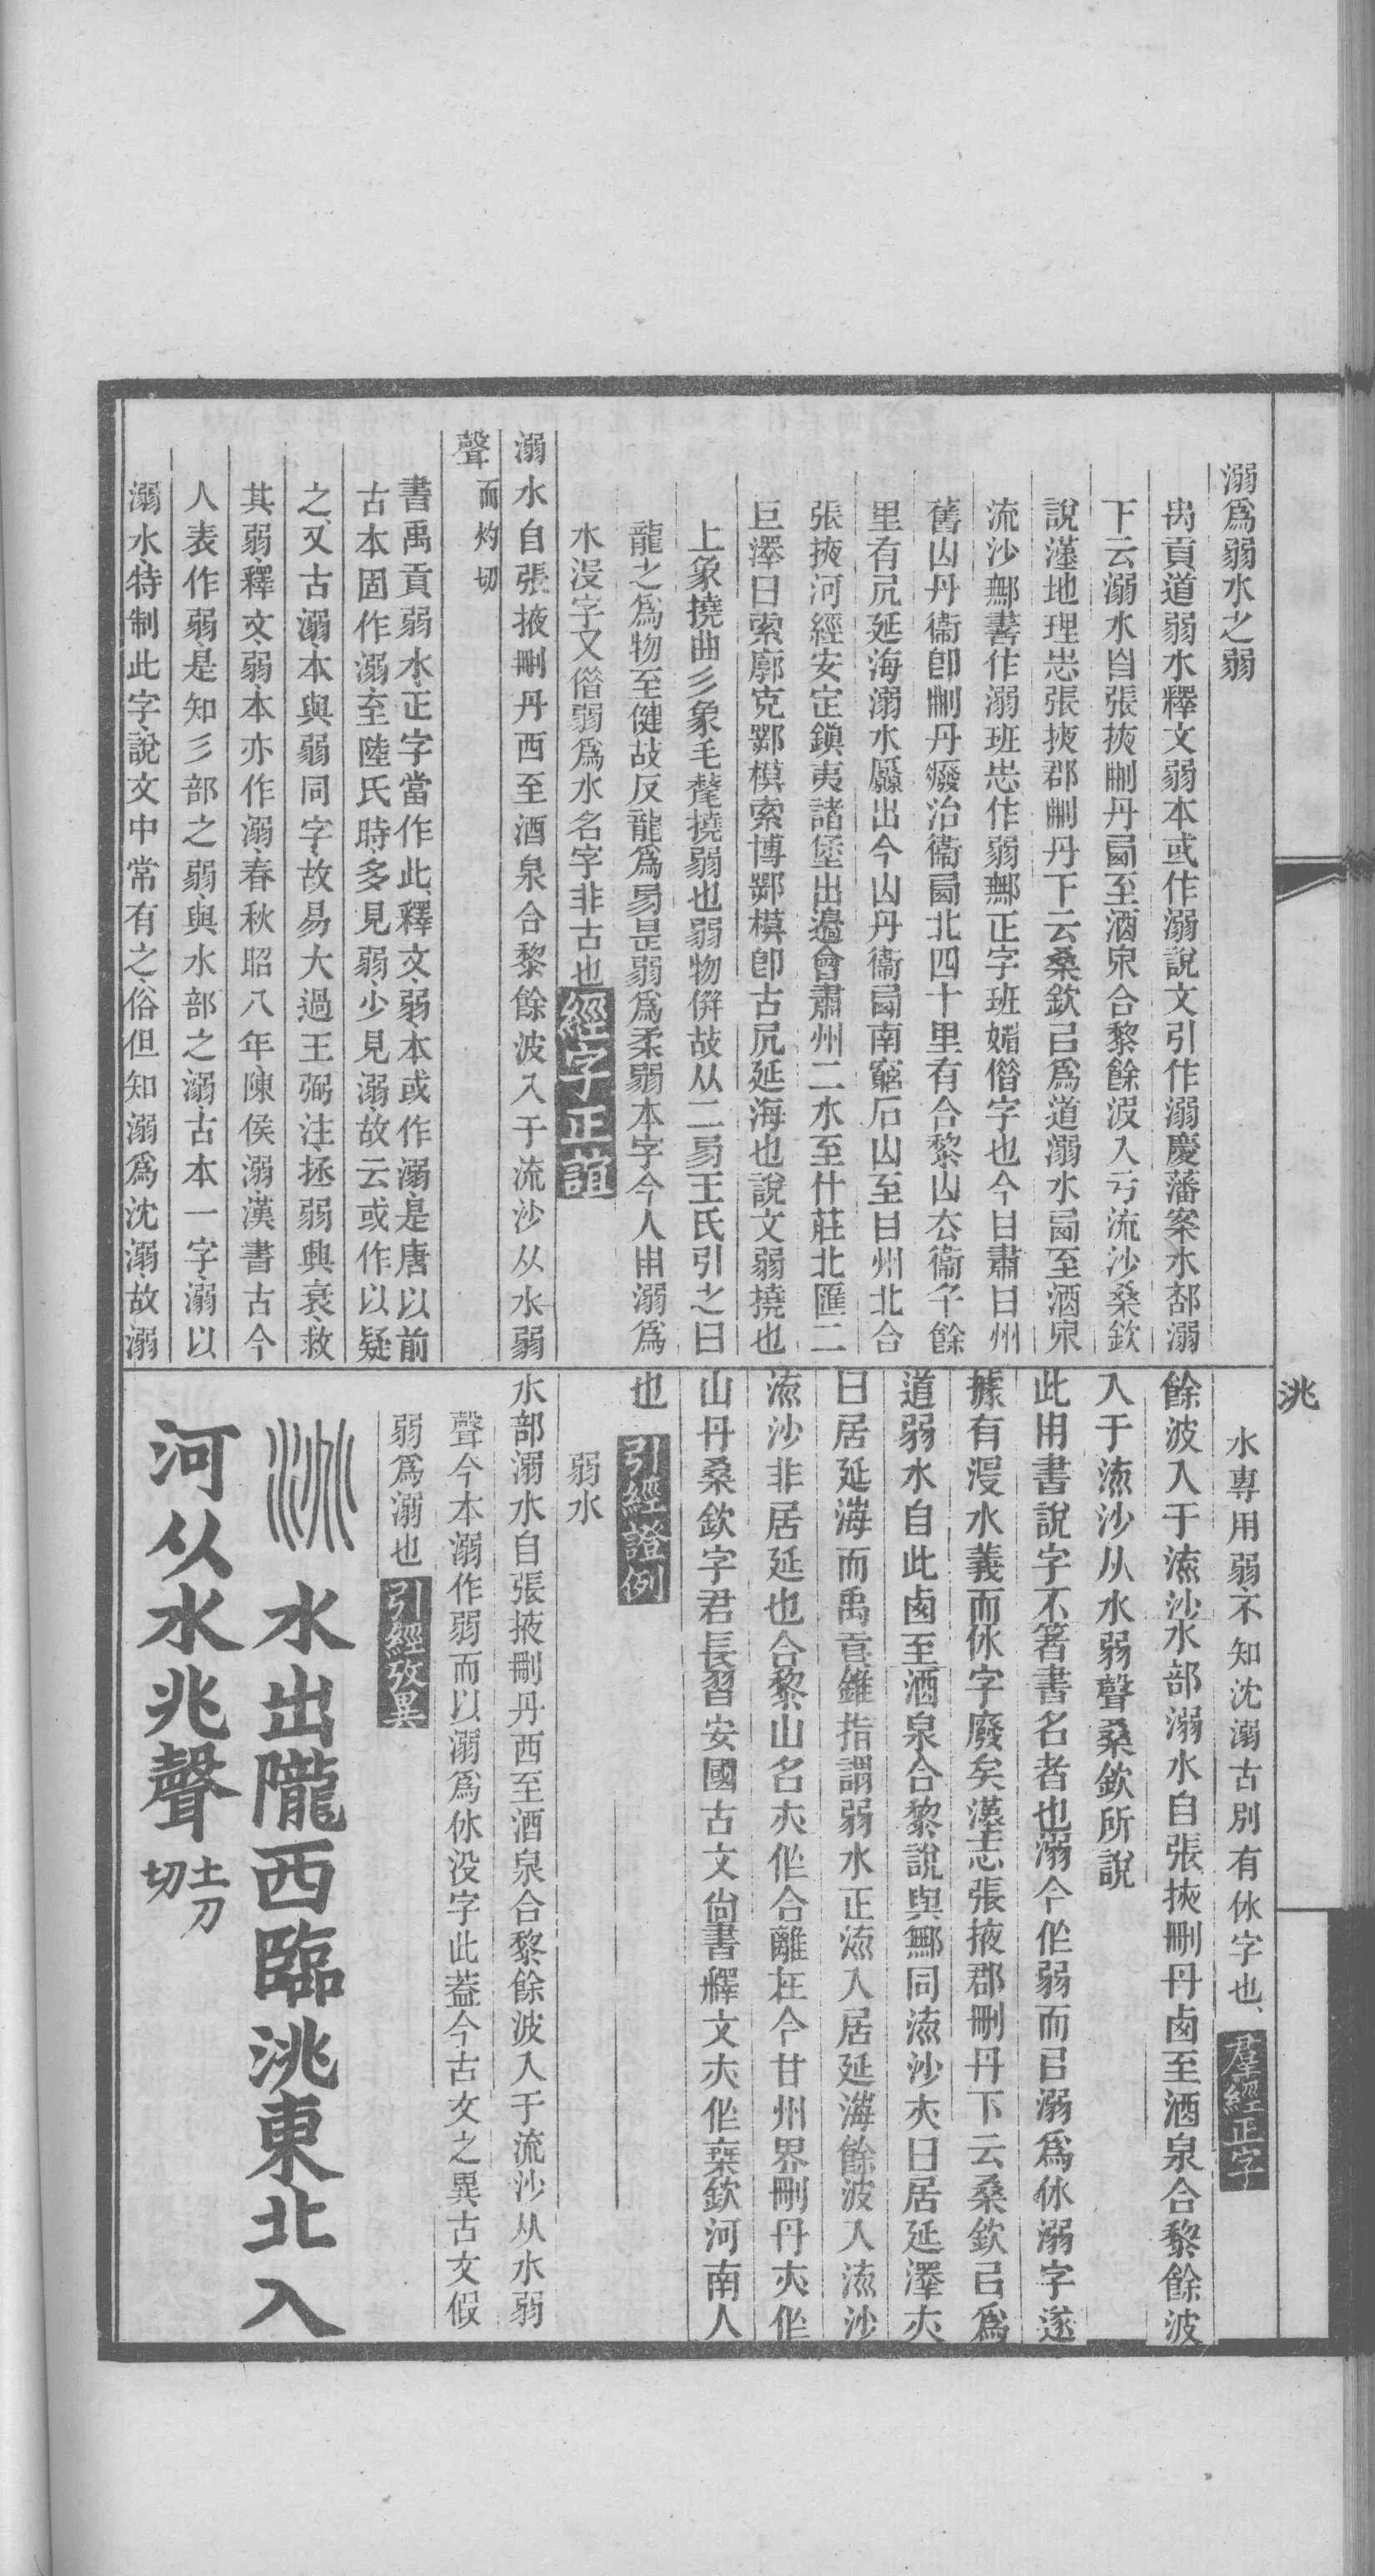 溺爲弱水之弱
禹貢道弱水釋文弱本或作溺說文引作溺慶藩案水部溺
下云溺水自張掖刪丹西至酒泉合黎餘波入于流沙桑欽
說漢地理志張掖郡刪丹下云桑欽㠯爲道溺水西至酒泉
流沙鄦書作溺班志作弱鄦正字班媘借字也今日肅日州
舊山丹衞卽刪丹廢治衞西北四十里有合黎山去衞千餘
里有凥延海溺水原出今山丹衞西南窮石山至日州北合
張掖河經安定鎭夷諸堡出邊會肅州二水至什莊北匯二
巨澤曰索廓克鄂模索博鄂模卽古凥延海也說文弱撓也
上象撓曲彡象毛氂撓弱也弱物倂故从二易王氏引之曰
龍之爲物至健故反龍爲易是弱爲柔弱本字今人用溺爲
水沒字又借弱爲水名字非古也經字正誼
溺水自張掖刪丹西至酒泉合黎餘波入于流沙从水弱
聲而灼切
書禹貢弱水正字當作此釋文弱本或作溺是唐以前
古本固作溺至陸氏時多見弱少見溺故云或作以疑
之又古溺本與弱同字故易大過王弼注拯弱興衰救
其弱釋文弱本亦作溺春秋昭八年陳侯溺漢書古今
人表作弱是知彡部之弱與水部之溺古本一字溺以
溺水特制此字說文中常有之俗但知溺爲沈溺故溺
水專用弱不知沈溺古別有㲻字也羣經正字
餘波入于流沙水部溺水自張掖刪丹西至酒泉合黎餘波
入于流沙从水弱聲桑欽所說
此用書說字不箸書名者也溺今作弱而㠯溺爲㲻溺字遂
據有沒水義而㲻字廢矣漢志張掖郡刪丹下云桑欽㠯爲
道弱水自此西至酒泉合黎說與鄦同流沙亦曰居延澤亦
曰居延海而禹貢錐指謂弱水正流入居延海餘波入流沙
流沙非居延也合黎山名亦作合離在今甘州界刪丹亦作
山丹桑欽字君長習安國古文尙書釋文亦作桒欽河南人
也引經證例
弱水
水部溺水自張掖刪丹西至酒泉合黎餘波入于流沙从水弱
聲今本溺作弱而以溺爲㲻没字此蓋今古文之異古文假
弱爲溺也引經攷異
洮水出隴西臨洮東北入
河从水兆聲土刀切
洮